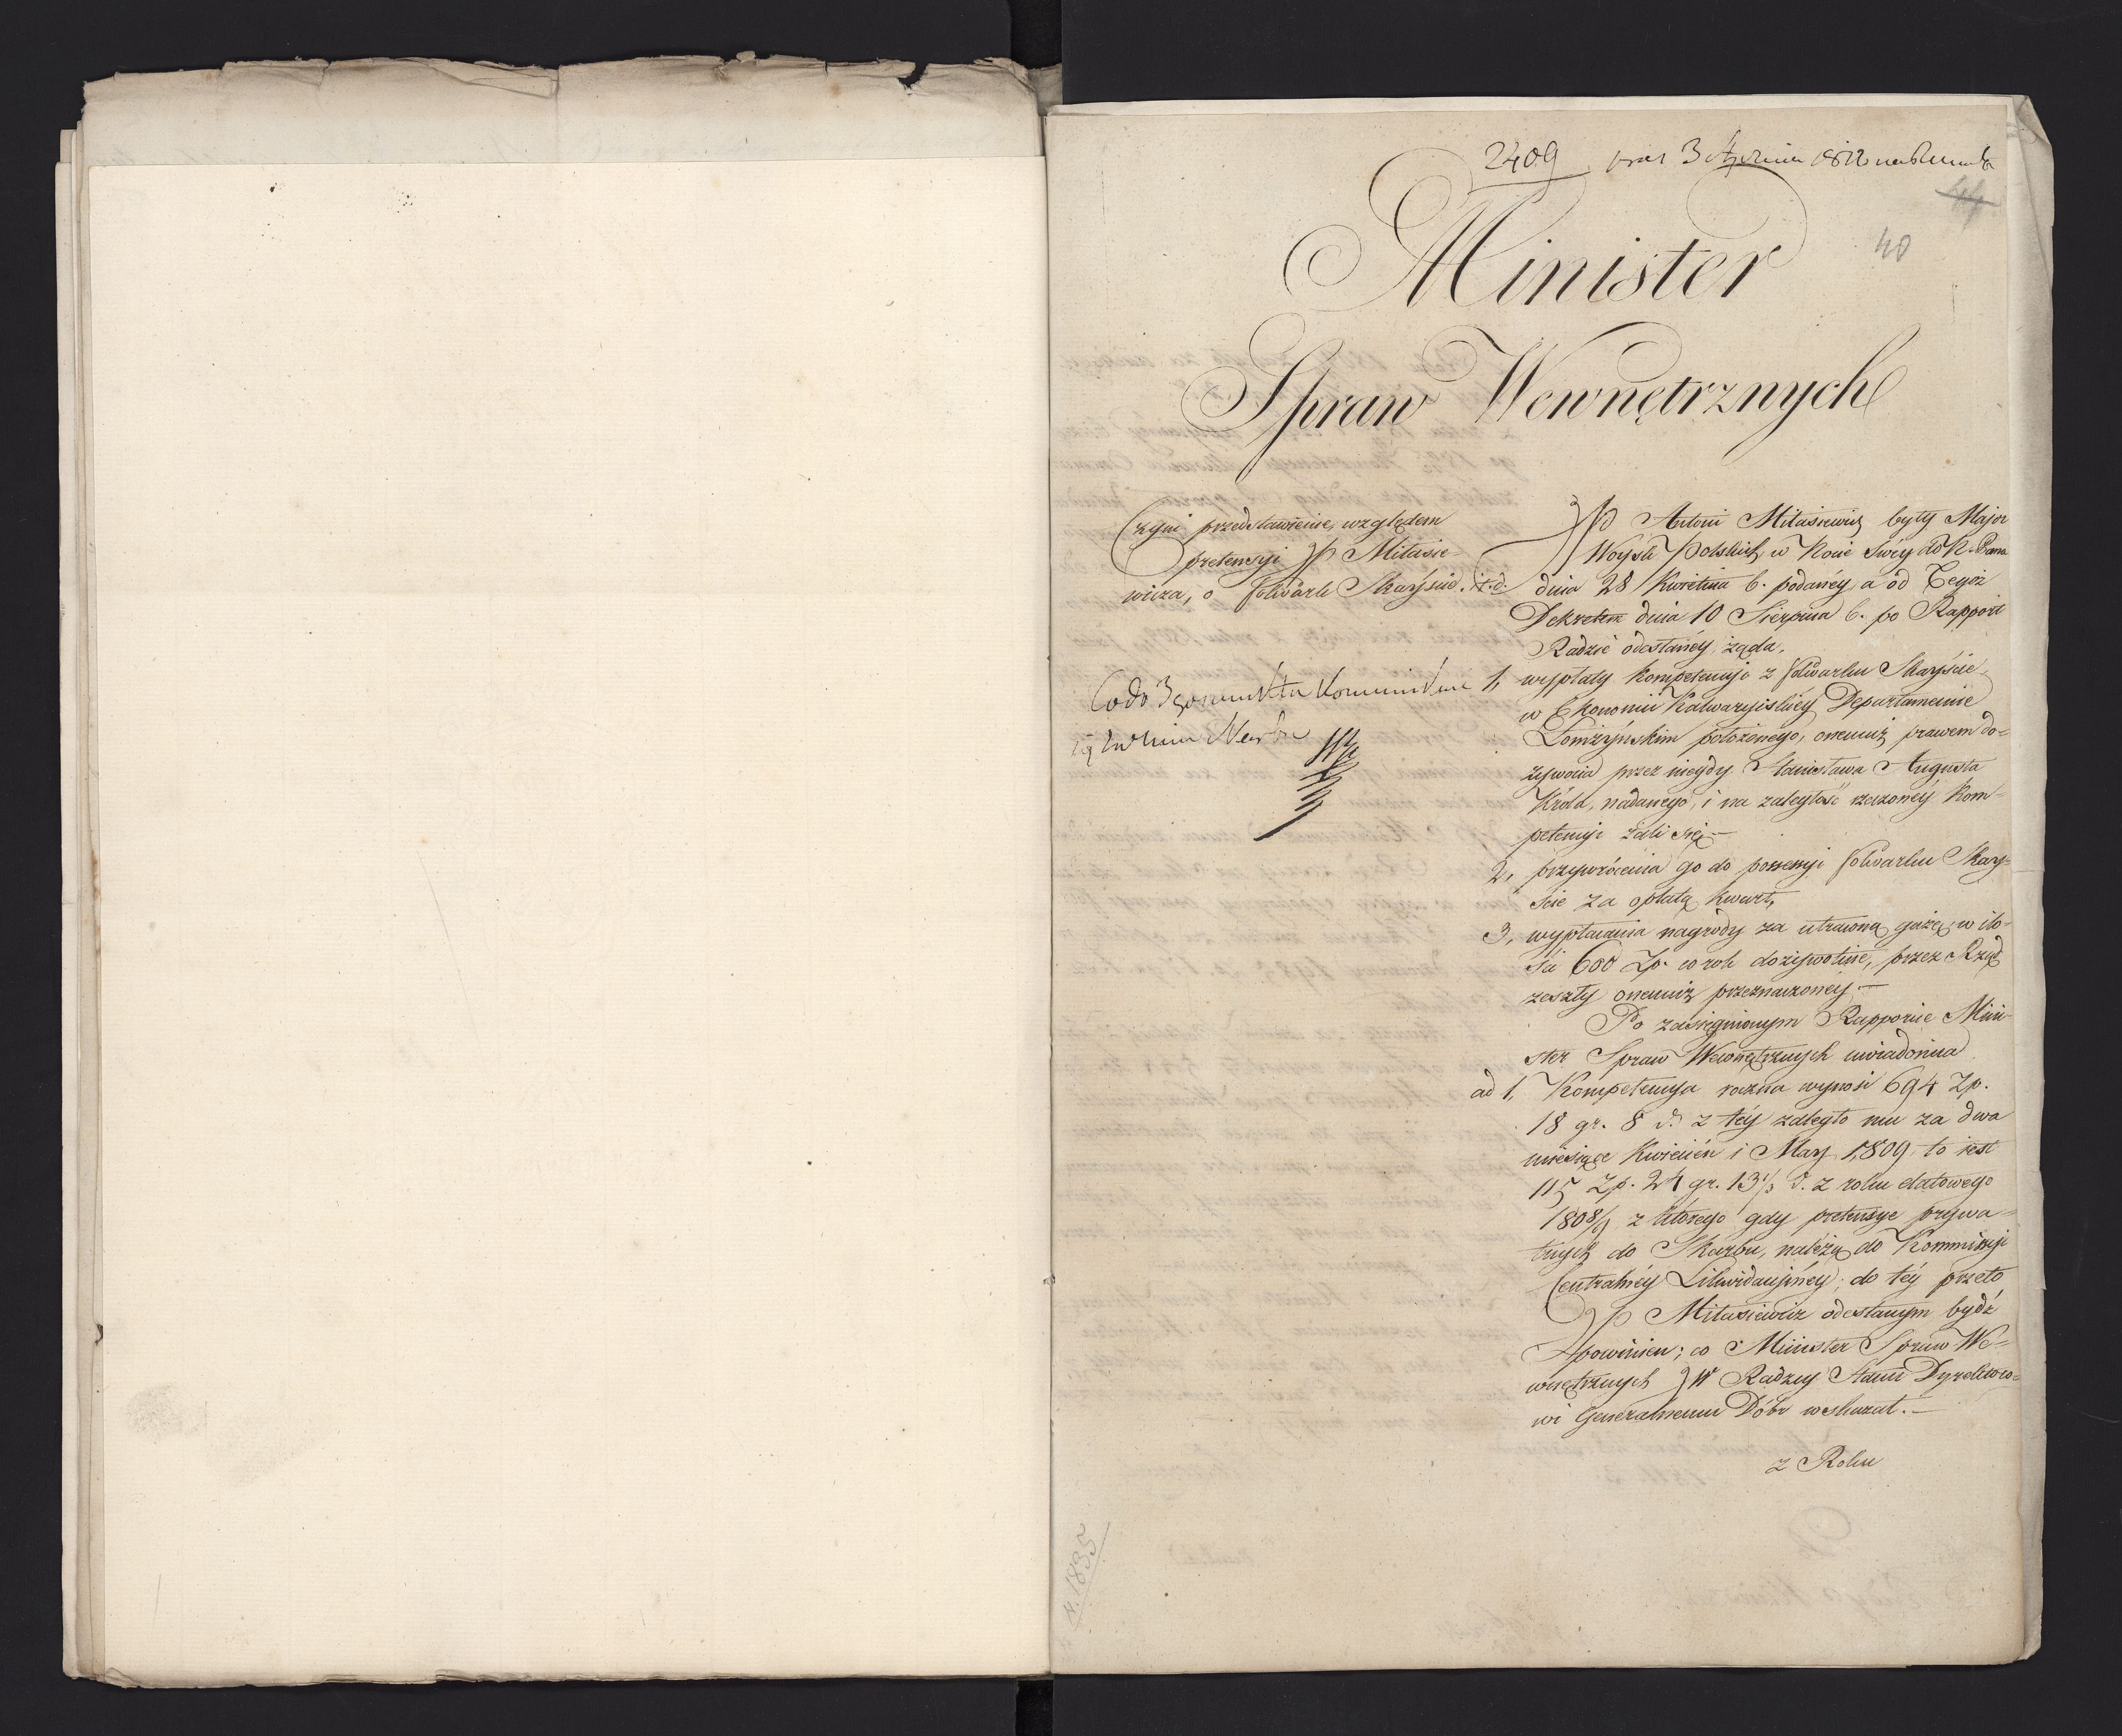 2409 3 stycznia 1812
44
40
Minister
Spraw Wewnętrznych
Czyni przedstawienie, względem
pretensyi JP Milasie-
wicza, o folwark Skaryście. i t. d.
Co do 3go punktu
JP Antoni Milasiewicz były Major
Woysk Polskich w Nocie swey do K. Pana
dnia 28 Kwietnia b. podaney, a od Tegoż
Dekretem dnia 10 Sierpnia b. po Rapport
Radzie odesłaney, żąda,
1, wypłaty kompetencyi z folwarku Skaryście,
w Ekonomii Kalwaryiskiey Departamencie
Łomżyńskim położonego, onemuż prawem do-
żywocia przez niegdy Stanisława Augusta
Króla, nadanego, i na zaległość rzeczoney kom-
petencyi żali się —
2, przywrócenia go do possessyi folwarku Skary-
ście za opłatą kwart,
3, wypłacania nagrody za utraconą gażę w ilo-
ści 600 Zp. co rok dożywotnie, przez Rząd
zeszły onemuż przeznaczoney. —
Po zasięgnionym Rapporcie Mini-
ster Spraw Wewnętrznych uwiadomia
ad 1, Kompetencya roczna wynosi 694 Zp.
18 gr. 8 d. z téy zaległo mu za dwa
miesiące Kwiecień i May 1809 to iest
115 Zp. 24 gr. 13 1/3 d. z roku etatowego
1808/9 z którego gdy pretensye prywa-
tnych do Skarbu, należą do Kommissyi
Centralnéy Likwidacyinéy; do téy przeto
JP Milasiewicz odesłanym bydź
powinien; co Minister Spraw We-
wnętrznych JW Radzcy Stanu Dyrektoro-
wi Generalnemu Dóbr wskazał. —
z Roku
N. 1835